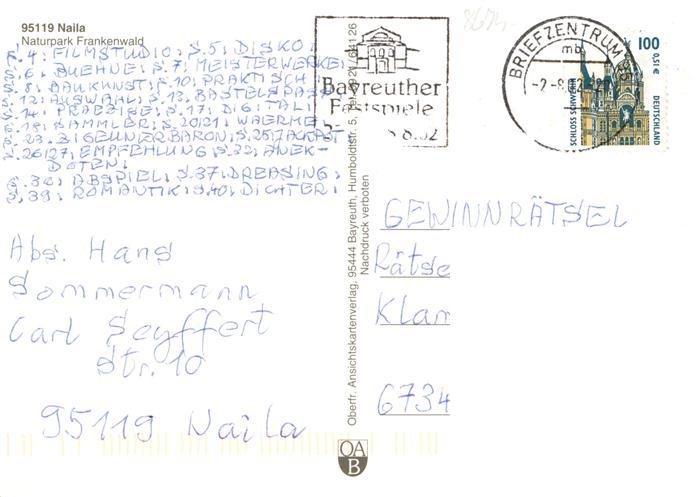 95119 Naila
Naturpark Frankenwald
S. 4: FILMSTUDIO; S. 5: DISKO;
S. 6: BUEHNE; S. 7: MEISTERWERKE;
S. 8: BAUKUNST; S. 10: PRAKTISCH;
S. 12: AUSWAHL; S. 13: BASTELSPASS;
S. 14: PRAEZISE; S. 17: DIGITAL;
S. 18: SAMMLER; S. 20/21: WAERME;
S. 23: ZIGEUNERBARON; S. 25: JACKPOT
S. 26/27: EMPFEHLUNG; S. 32: ANEK-
DOTEN;
S. 36: ABSPIEL; S. 37: DREASING;
S. 39: ROMANTIK; S. 40: DICHTER;
Abs. Hans
Sommermann
Carl Seyffert
Str. 10
95119 Naila
Bayreuther
Festspiele
8.02
BRIEFZENTRUM
mb
100
0,51 €
DEUTSCHLAND
SCHLOSS SCHWERIN
Oberfr. Ansichtskartenverlag, 95444 Bayreuth, Humboldtstr. 5,
Nachdruck verboten
GEWINNRÄTSEL
Rätse
Klam
6734
OA
B